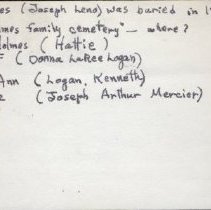 es (Joseph Leno) was buried in 1
mes family cemetery" — where?
Holmes (Hattie)
F (Donna LaRee Logan)
Ann (Logan, Kenneth)
(Joseph Arthur Mercier)